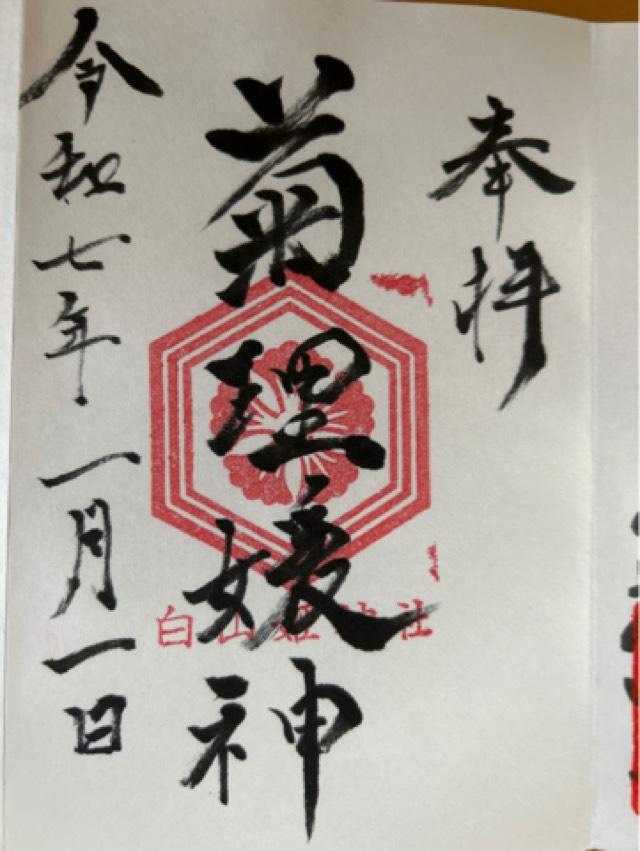 奉拝
菊理媛神
令和七年一月一日
白山姫神社